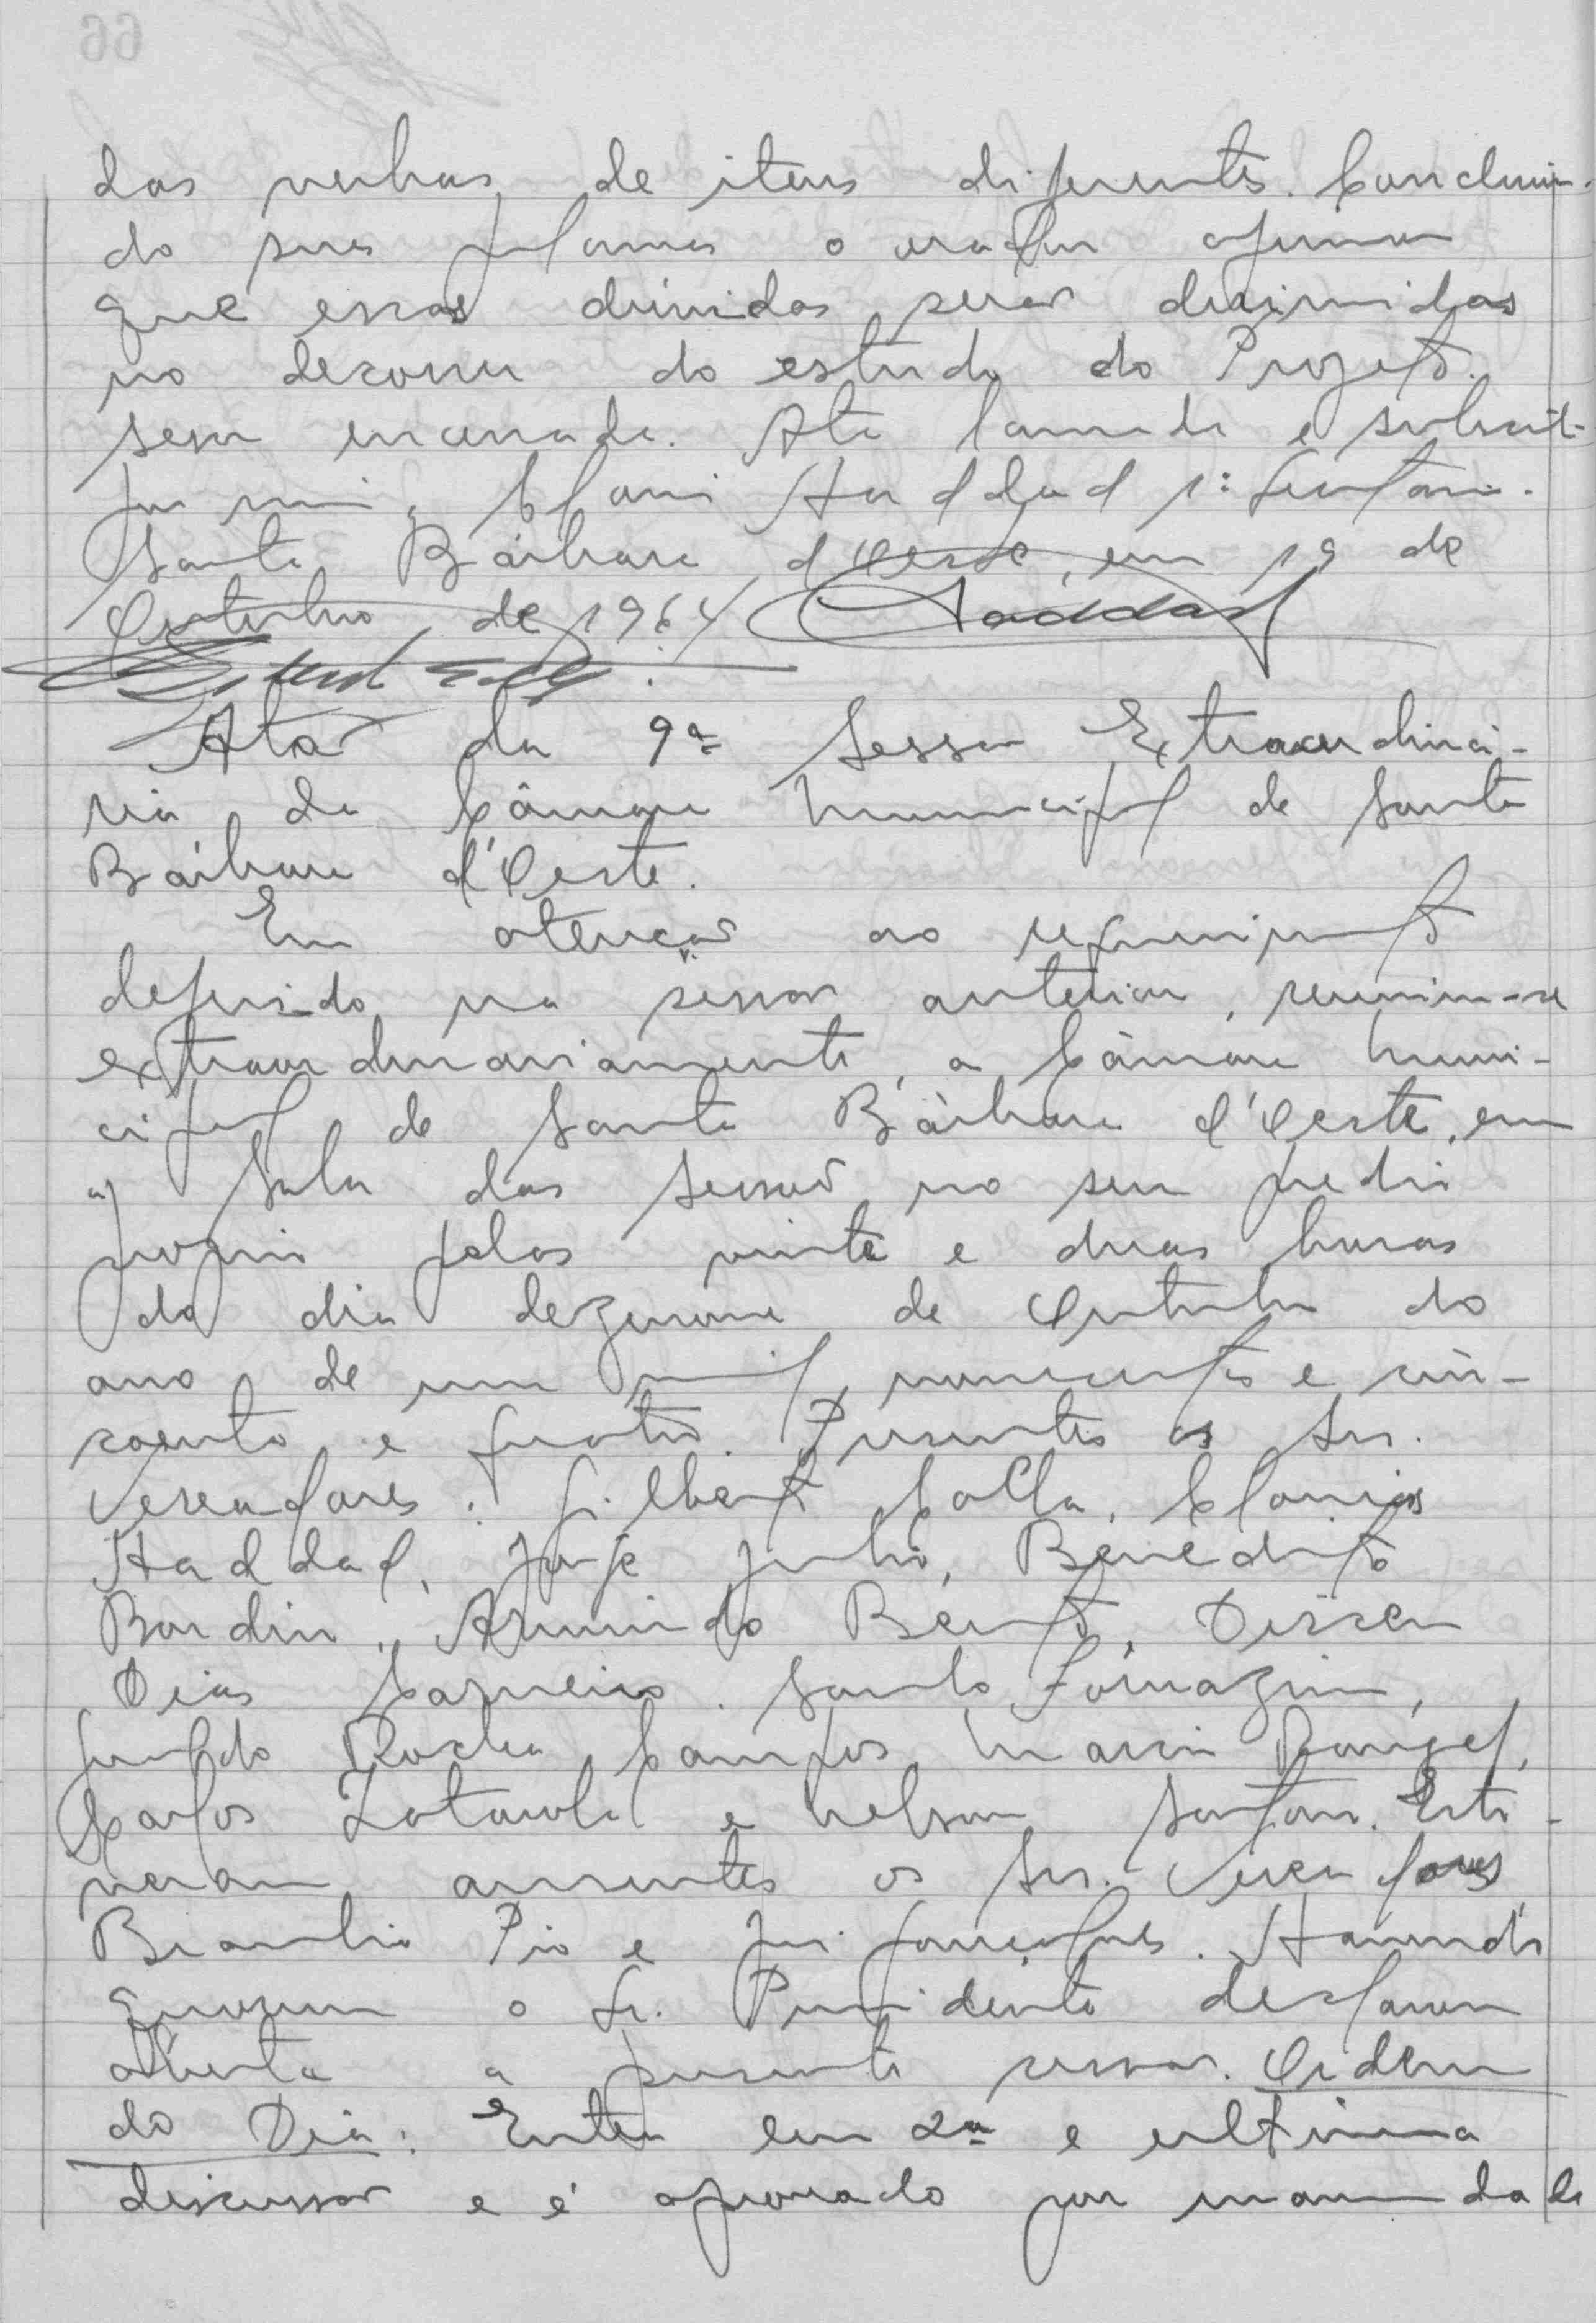 das verbas de itens diferentes. Concluin-
do suas palavras o orador afirmou
que essas dúvidas serão dirimidas
no decorrer do estudo do Projeto.
sessão encerrada. Ata lavrada e subscrit-
por mim, Clamir Haddad 1º Secretario.
Santa Bárbara d'Oeste, em 19 de
Outubro de 1964 Haddad
Ata da 9ª Sessão Extraordiná-
ria da Câmara Municipal de Santa
Bárbara d'Oeste.
Em atenção ao requerimento
deferido na sessão anterior, reuniu-se
extraordinariamente, a Câmara Muni-
cipal de Santa Bárbara d'Oeste, em
a Sala das Sessões no seu prédio
proprio pelas vinte e duas horas
do dia dezenove de Outubro do
ano de um mil novecentos e cin-
coenta e quatro. Presentes os Srs.
Vereadores: Gilberto Calla,
Haddad, Jorge Julio, Benedito
Bordin, Armindo Bento, Dirceu
Dias Carneiro, Santo Fornazim,
Geraldo Rocha Campos, Mario
Carlos e Nelson Sartori. Esti-
veram ausentes os Srs. Vereadores
Braulio Pio e Gonçalves. Havendo
quorum o Sr. Presidente declarou
aberta a presente sessão. Ordem
do Dia: Entra em 2ª e ultima
discussão e é aprovado por unanimidade